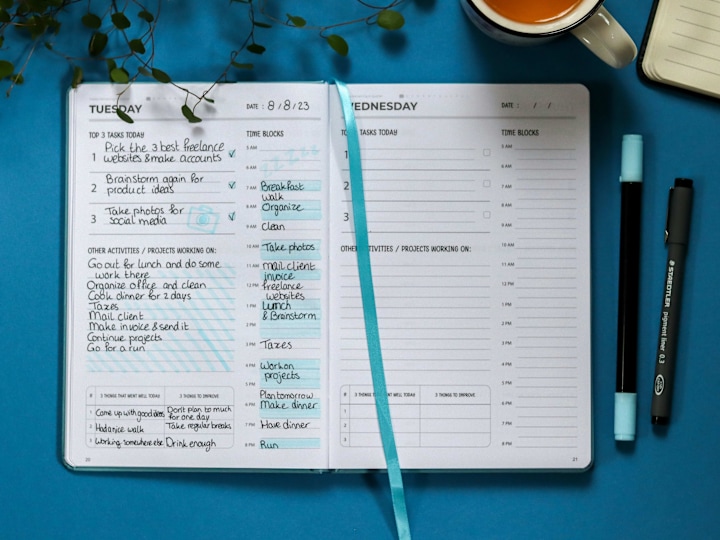 TUESDAY
DATE : 8/8/23
TOP 3 TASKS TODAY
1 Pick the 3 best freelance
websites & make accounts
2 Brainstorm again for
product ideas
3 Take photos for
social media
OTHER ACTIVITIES / PROJECTS WORKING ON:
Go out for lunch and do some
work there
Organize office and clean
Cook dinner for 2 days
Taxes
Mail client
Make invoice & send it
Continue projects
Go for a run
# 3 THINGS THAT WENT WELL TODAY 3 THINGS TO IMPROVE
1 Came up with good ideas Don't plan to much
for one day
2 Had a nice walk Take regular breaks
3 Working somewhere else Drink enough
20
TIME BLOCKS
5 AM
6 AM zzzzz
7 AM Breakfast
walk
8 AM Organize
9 AM Clean
10 AM Take photos
11 AM Mail client
invoice
12 PM freelance
websites
1 PM Lunch
& Brainstorm
2 PM
3 PM Taxes
4 PM Work on
projects
5 PM
Plan tomorrow
6 PM Make dinner
7 PM Have dinner
8 PM Run
WEDNESDAY
DATE : / /
TOP 3 TASKS TODAY
1
2
3
OTHER ACTIVITIES / PROJECTS WORKING ON:
# 3 THINGS THAT WENT WELL TODAY 3 THINGS TO IMPROVE
1
2
3
TIME BLOCKS
5 AM
6 AM
7 AM
8 AM
9 AM
10 AM
11 AM
12 PM
1 PM
2 PM
3 PM
4 PM
5 PM
6 PM
7 PM
8 PM
21
STAEDTLER pigment liner 0.3